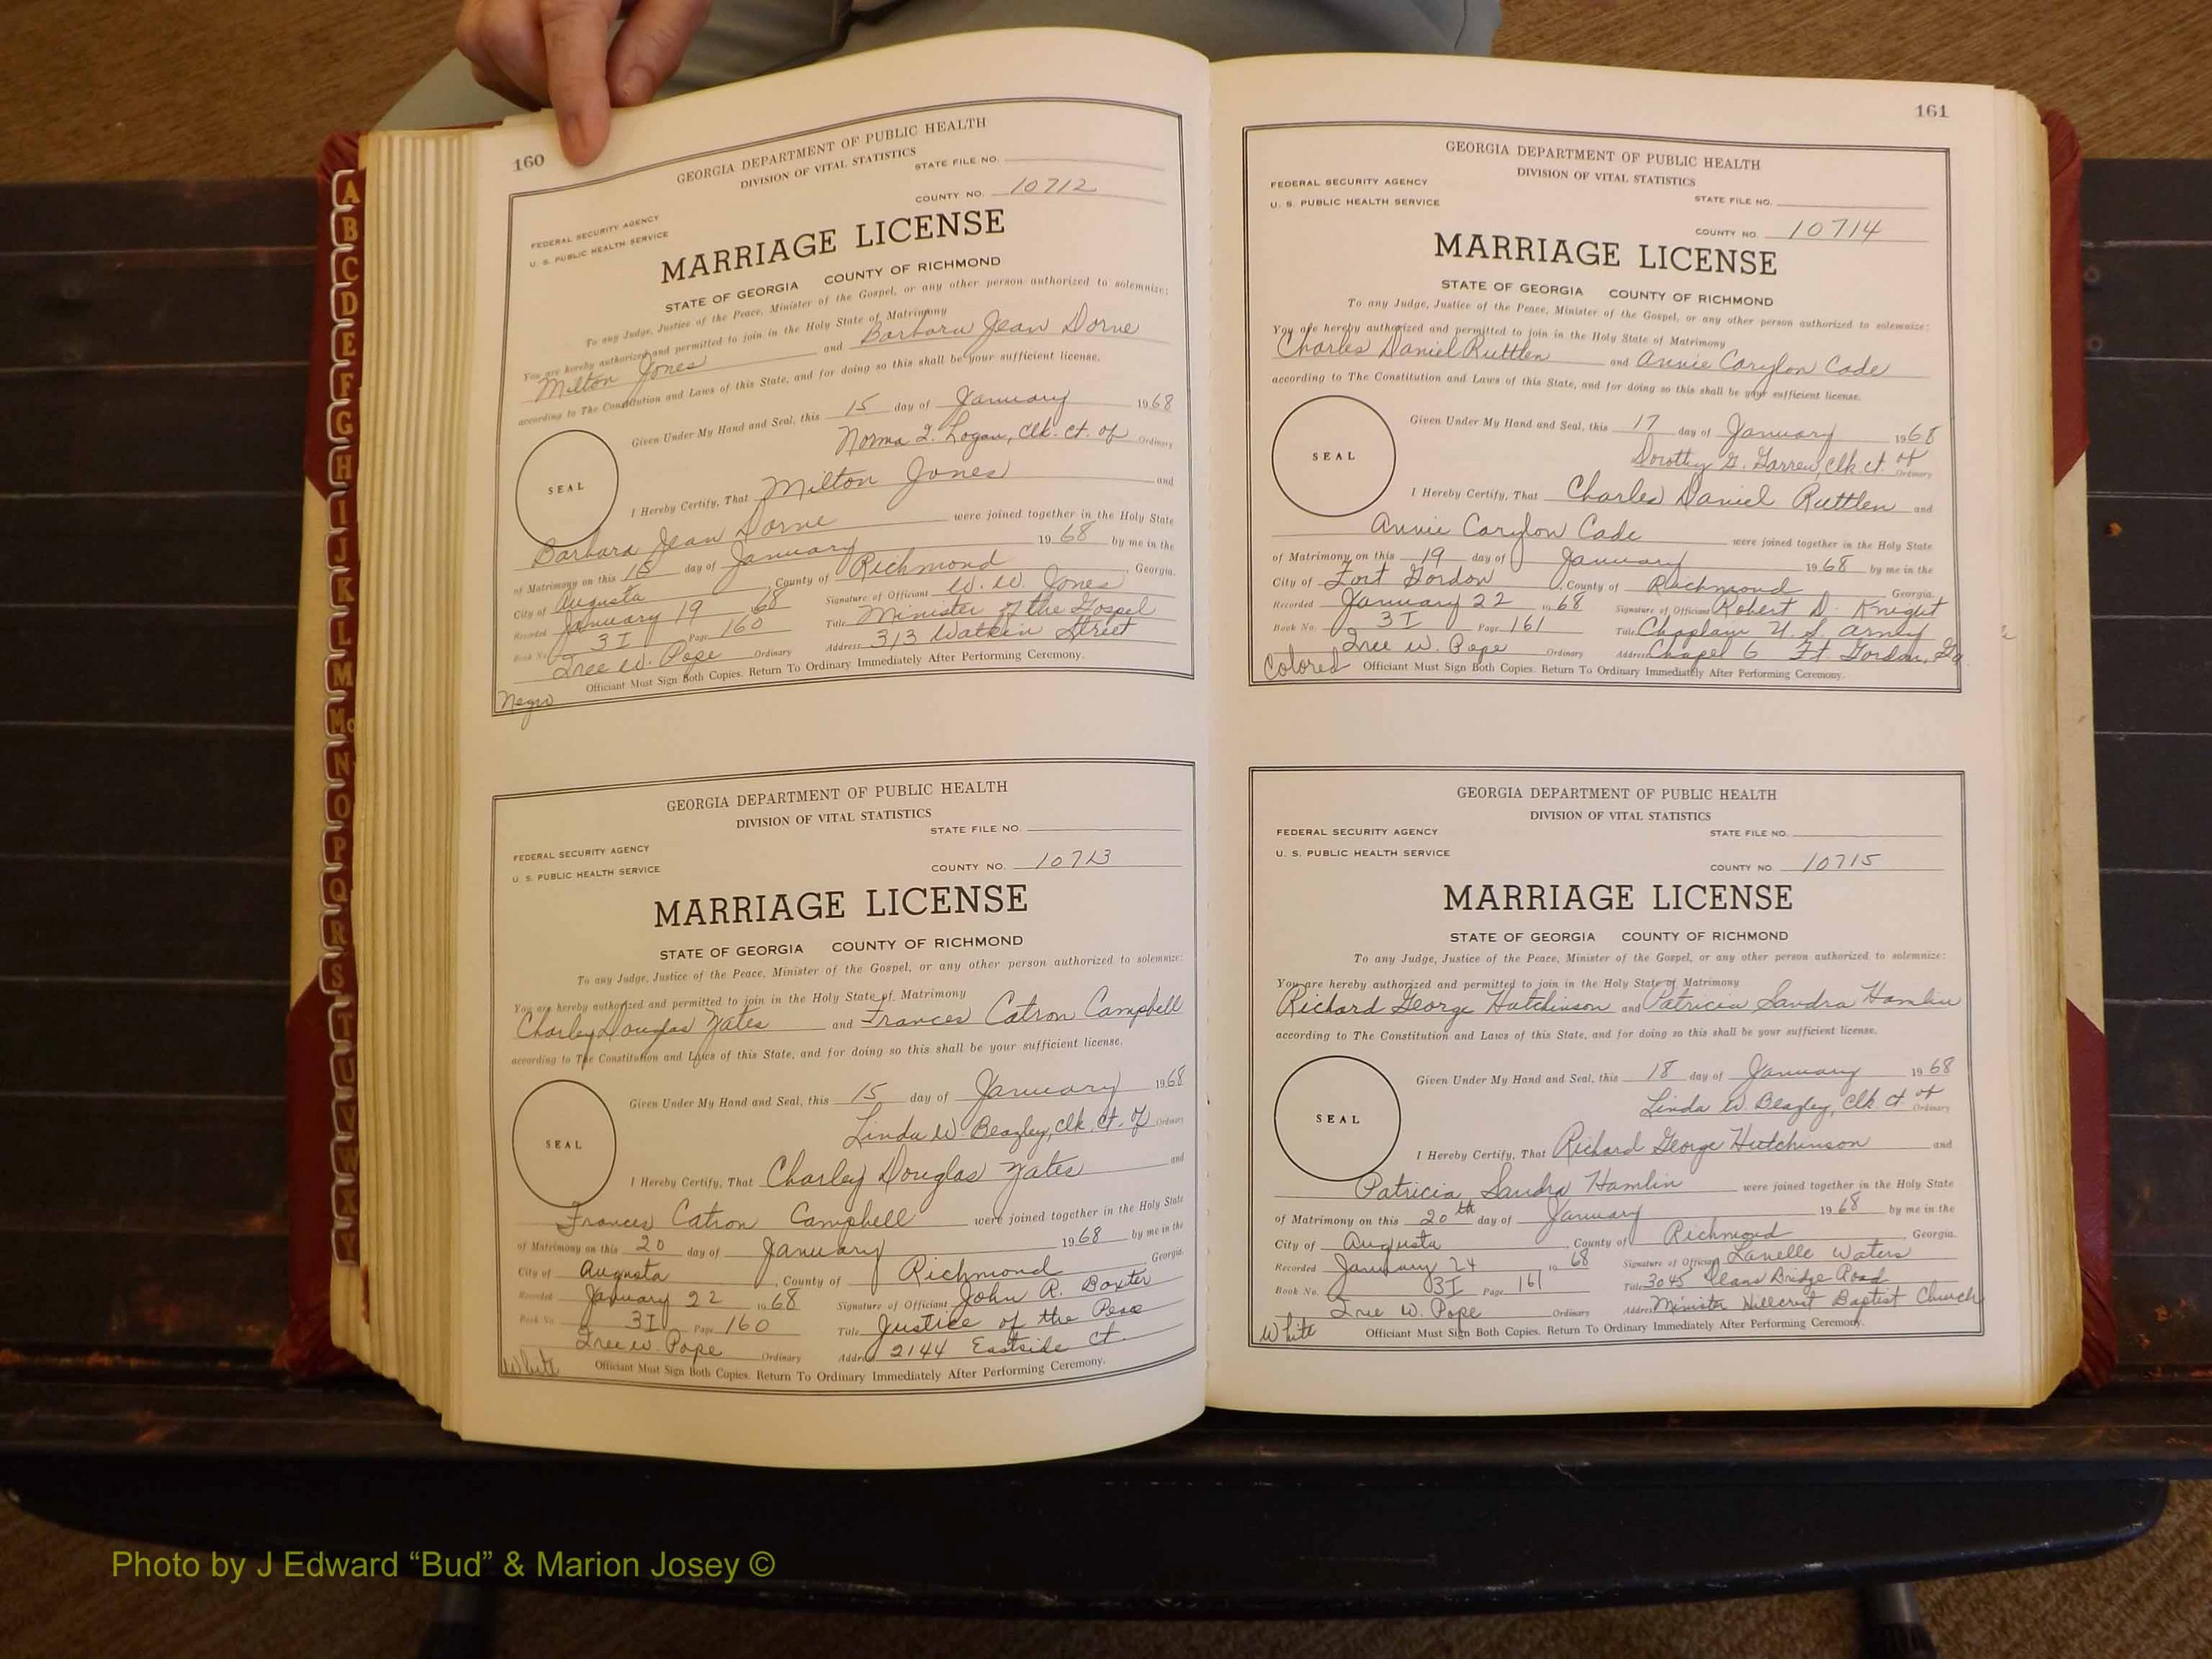 160
GEORGIA DEPARTMENT OF PUBLIC HEALTH
DIVISION OF VITAL STATISTICS
STATE FILE NO.
COUNTY NO. 10712
FEDERAL SECURITY AGENCY
U. S. PUBLIC HEALTH SERVICE
MARRIAGE LICENSE
STATE OF GEORGIA COUNTY OF RICHMOND
To any Judge, Justice of the Peace, Minister of the Gospel, or any other person authorized to solemnize:
You are hereby authorized and permitted to join in the Holy State of Matrimony
Milton Jones and Barbara Jean Dorne
according to The Constitution and Laws of this State, and for doing so this shall be your sufficient license.
Given Under My Hand and Seal, this 15 day of January 1968
Norma I. Logan, Clk. Ct. of Ordinary
SEAL
I Hereby Certify, That Milton Jones and
Barbara Jean Dorne were joined together in the Holy State
of Matrimony on this 15 day of January 1968 by me in the
City of Augusta, County of Richmond, Georgia.
Recorded January 19 68 Signature of Officiant W. W. Jones
Book No. 3I Page 160 Title Minister of the Gospel
Iree W. Pope Ordinary Address 313 Watkin Street
Officiant Must Sign Both Copies. Return To Ordinary Immediately After Performing Ceremony.
Negro
GEORGIA DEPARTMENT OF PUBLIC HEALTH
DIVISION OF VITAL STATISTICS
STATE FILE NO.
FEDERAL SECURITY AGENCY
U. S. PUBLIC HEALTH SERVICE
COUNTY NO. 10713
MARRIAGE LICENSE
STATE OF GEORGIA COUNTY OF RICHMOND
To any Judge, Justice of the Peace, Minister of the Gospel, or any other person authorized to solemnize:
You are hereby authorized and permitted to join in the Holy State of Matrimony
Charley Douglas Yates and Frances Catron Campbell
according to The Constitution and Laws of this State, and for doing so this shall be your sufficient license.
Given Under My Hand and Seal, this 15 day of January 1968
Linda W. Beazley, Clk. Ct. of Ordinary
SEAL
I Hereby Certify, That Charley Douglas Yates and
Frances Catron Campbell were joined together in the Holy State
of Matrimony on this 20 day of January 1968 by me in the
City of Augusta, County of Richmond Georgia.
Recorded January 22 1968 Signature of Officiant John R. Baxter
Book No. 3I Page 160 Title Justice of the Peace
Iree W. Pope Ordinary Address 2144 Eastside Ct.
White Officiant Must Sign Both Copies. Return To Ordinary Immediately After Performing Ceremony.
161
GEORGIA DEPARTMENT OF PUBLIC HEALTH
DIVISION OF VITAL STATISTICS
FEDERAL SECURITY AGENCY
U. S. PUBLIC HEALTH SERVICE
STATE FILE NO.
COUNTY NO. 10714
MARRIAGE LICENSE
STATE OF GEORGIA COUNTY OF RICHMOND
To any Judge, Justice of the Peace, Minister of the Gospel, or any other person authorized to solemnize:
You are hereby authorized and permitted to join in the Holy State of Matrimony
Charles Daniel Ruttlen and Annie Carylon Cade
according to The Constitution and Laws of this State, and for doing so this shall be your sufficient license.
Given Under My Hand and Seal, this 17 day of January 1968
Dorothy G. Garren, Clk Ct. of Ordinary
SEAL
I Hereby Certify, That Charles Daniel Ruttlen and
Annie Carylon Cade were joined together in the Holy State
of Matrimony on this 19 day of January 1968 by me in the
City of Fort Gordon, County of Richmond Georgia.
Recorded January 22 1968 Signature of Officiant Robert D. Knight
Book No. 3I Page 161 Title Chaplain U.S. Army
Iree W. Pope Ordinary Address Chapel 6 Ft. Gordon, Ga
Colored Officiant Must Sign Both Copies. Return To Ordinary Immediately After Performing Ceremony.
GEORGIA DEPARTMENT OF PUBLIC HEALTH
DIVISION OF VITAL STATISTICS
FEDERAL SECURITY AGENCY
U. S. PUBLIC HEALTH SERVICE
STATE FILE NO.
COUNTY NO. 10715
MARRIAGE LICENSE
STATE OF GEORGIA COUNTY OF RICHMOND
To any Judge, Justice of the Peace, Minister of the Gospel, or any other person authorized to solemnize:
You are hereby authorized and permitted to join in the Holy State of Matrimony
Richard George Hutchinson and Patricia Sandra Hamlin
according to The Constitution and Laws of this State, and for doing so this shall be your sufficient license.
Given Under My Hand and Seal, this 18 day of January 1968
Linda W. Beazley, Clk Ct of Ordinary
SEAL
I Hereby Certify, That Richard George Hutchinson and
Patricia Sandra Hamlin were joined together in the Holy State
of Matrimony on this 20th day of January 1968 by me in the
City of Augusta, County of Richmond, Georgia.
Recorded January 24 1968 Signature of Officiant Lanelle Waters
Book No. 3I Page 161 Title 3045 Deans Bridge Road
Iree W. Pope Ordinary Address Minister Hillcrest Baptist Church
White Officiant Must Sign Both Copies. Return To Ordinary Immediately After Performing Ceremony.
A
B
C
D
E
F
G
H
I
J
K
L
M
Mc
N
O
P
Q
R
S
T
U
V
W
X
Y
Photo by J Edward “Bud” & Marion Josey ©